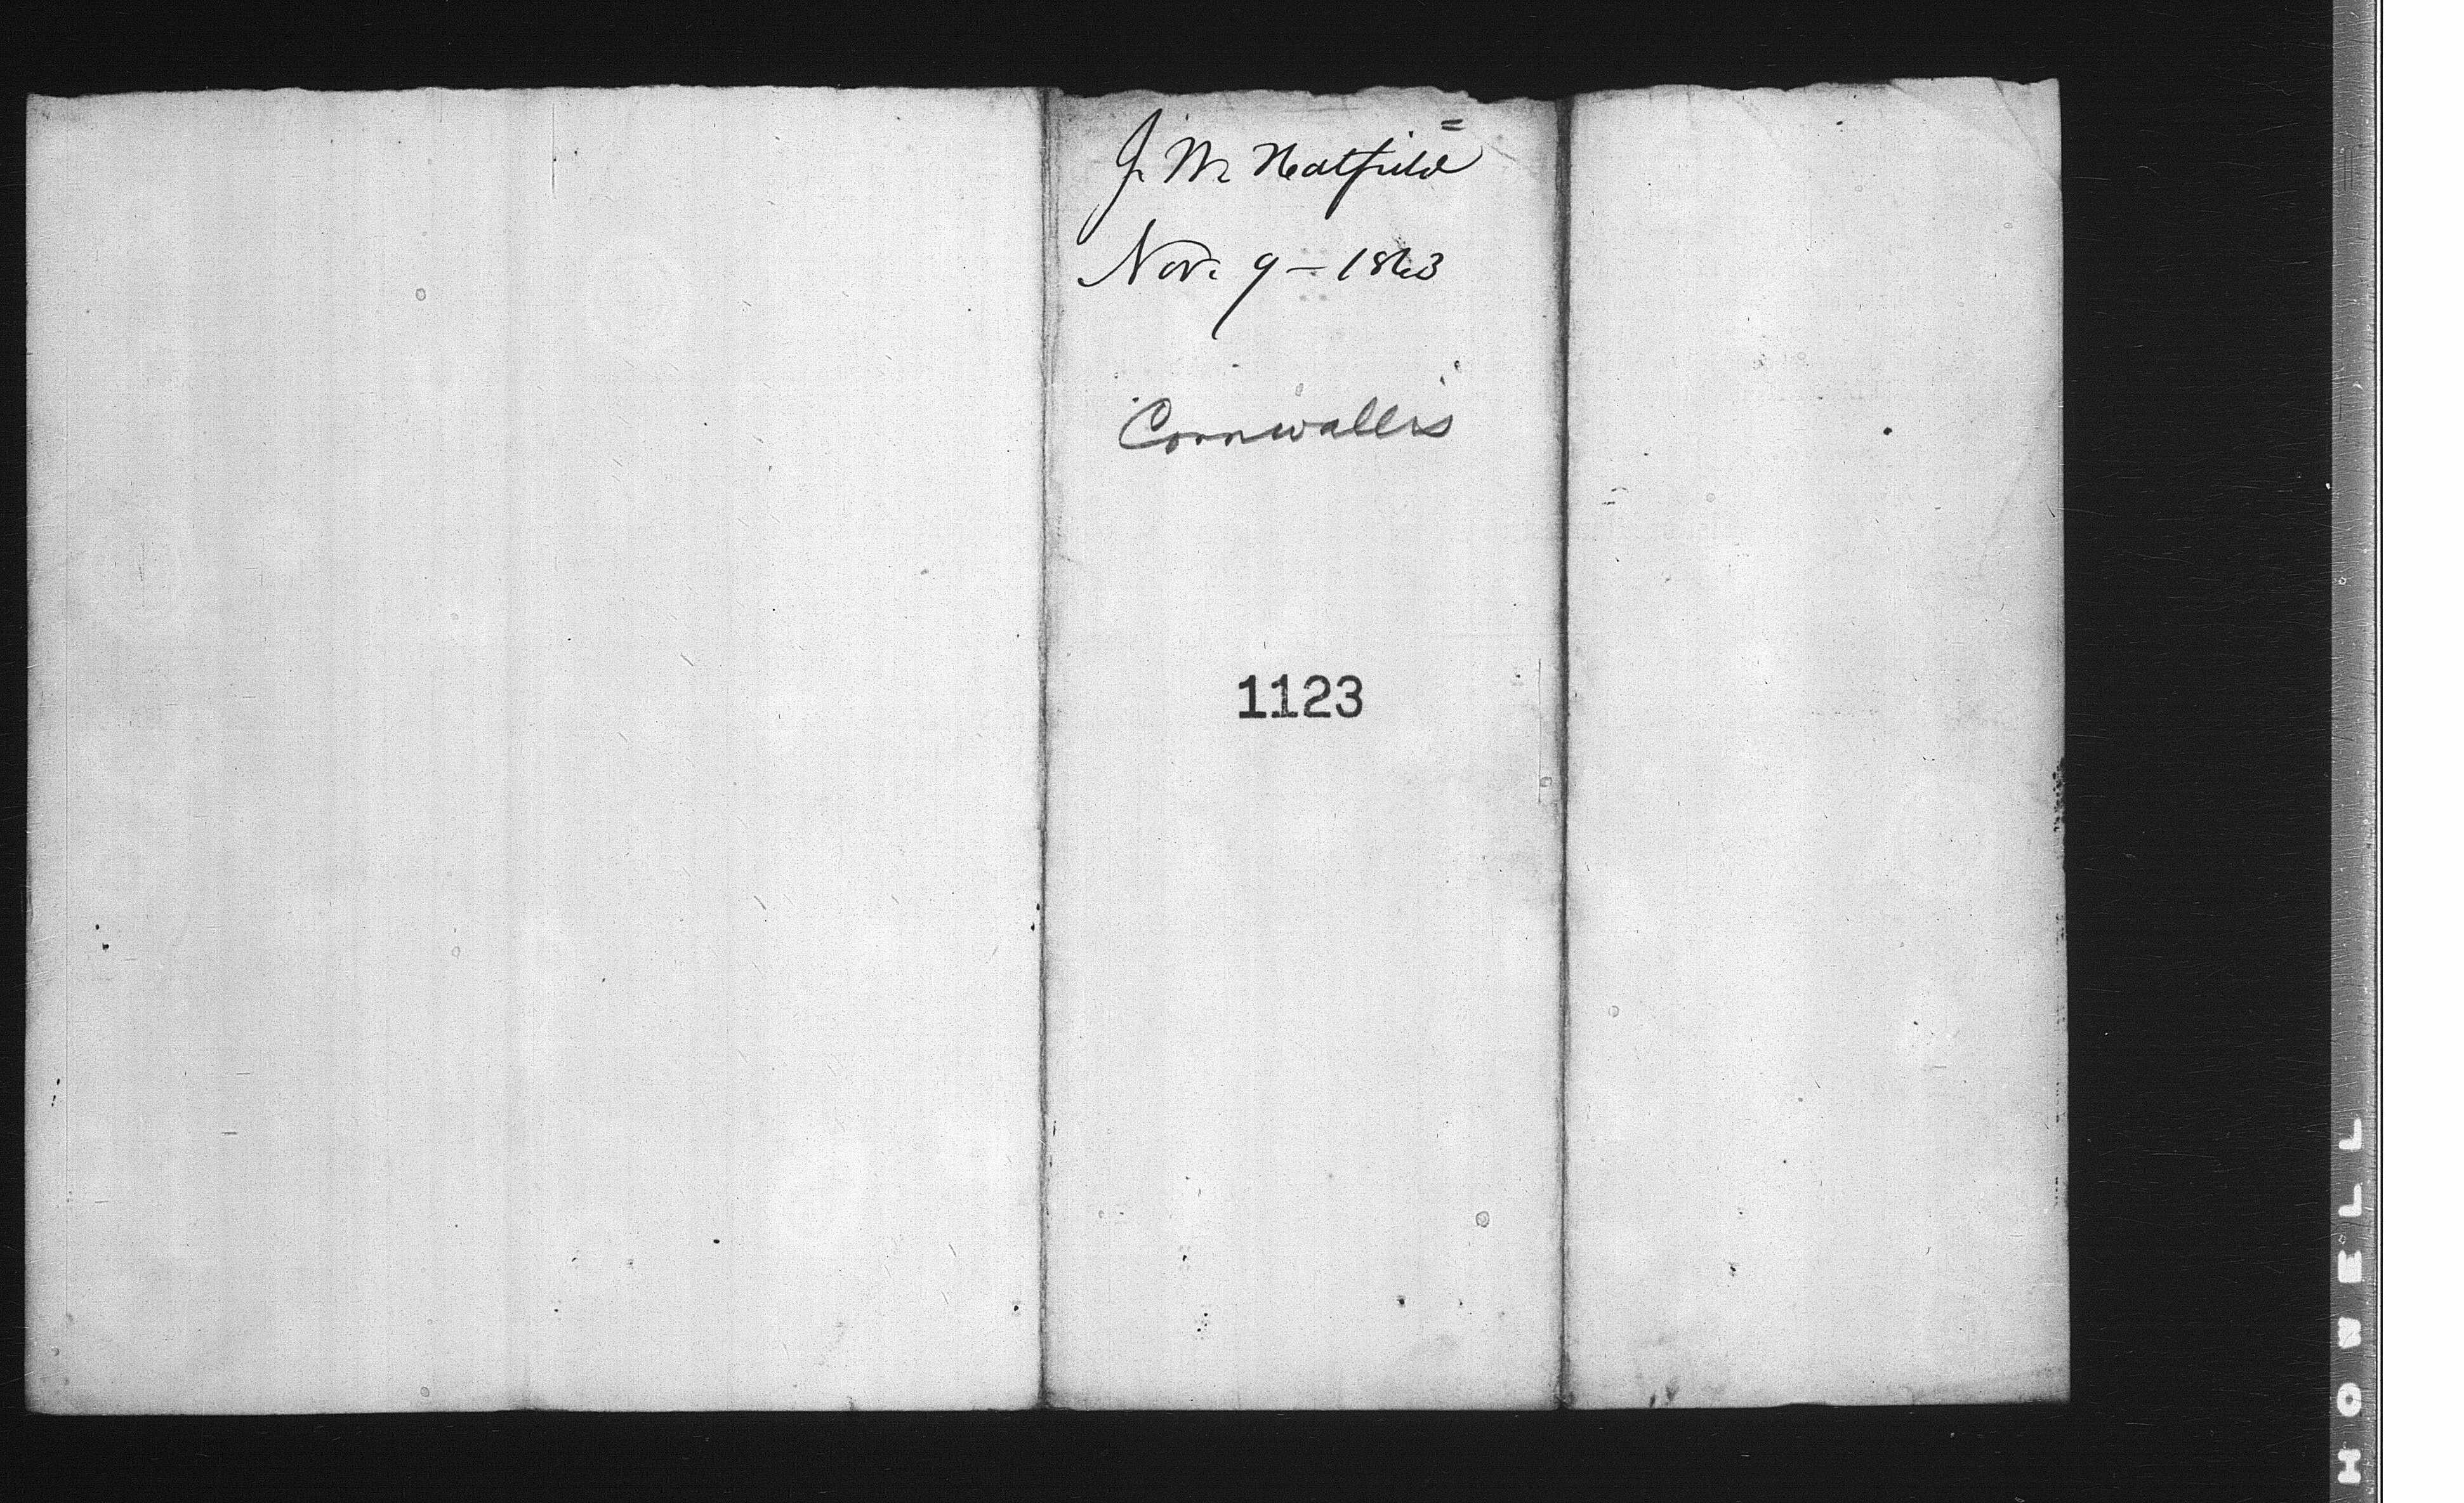 J. W. Hatfield
Nov. 9 - 1863
Cornwallis
1123
HONELL